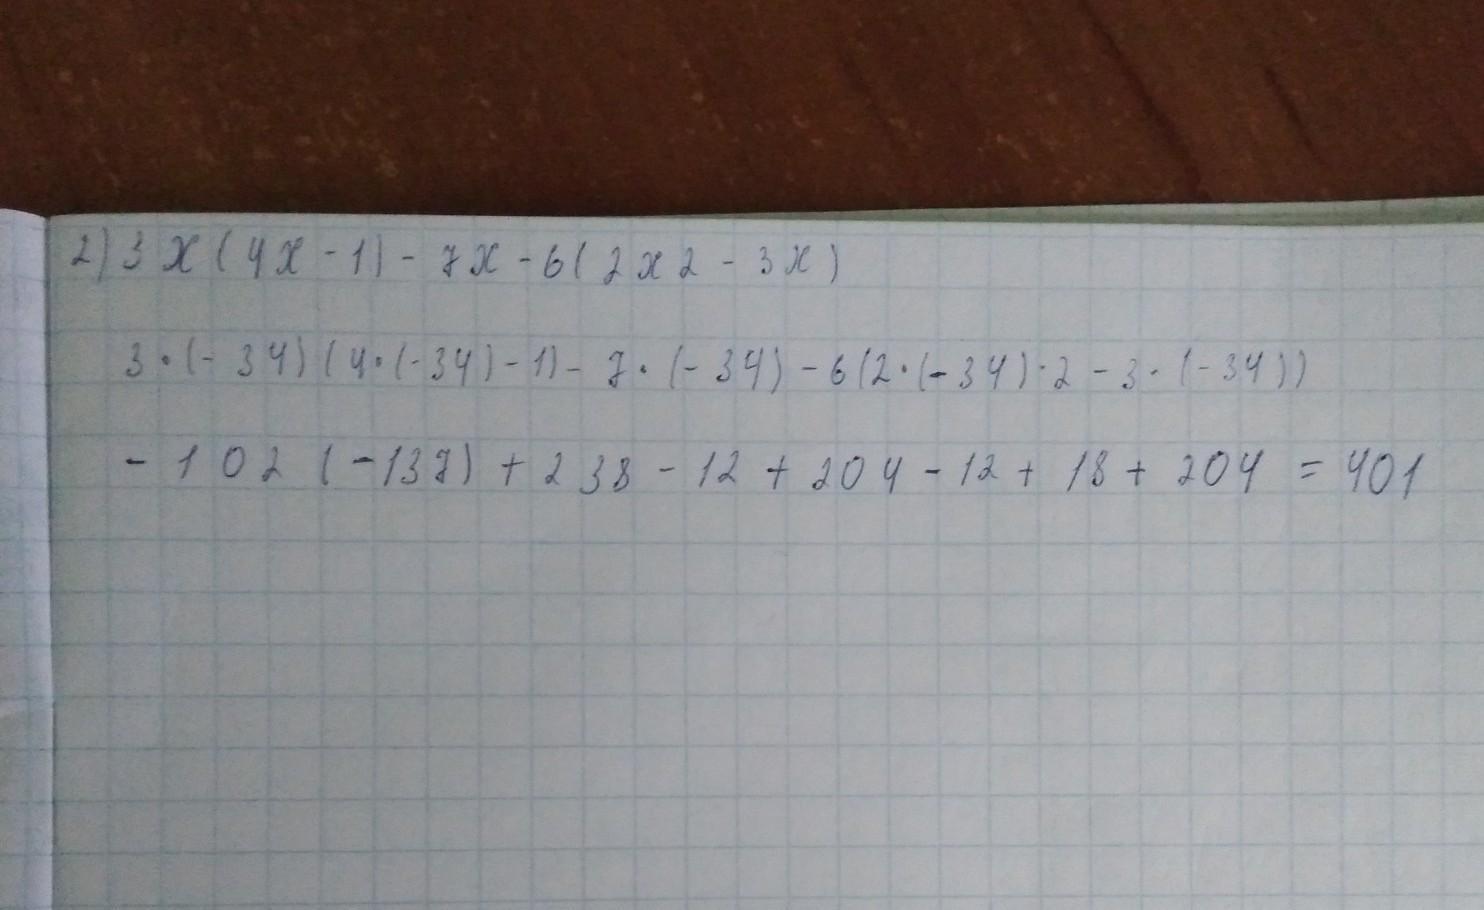 2) 3x(4x-1)-7x-6(2x2-3x)
3·(-34)(4·(-34)-1)-7·(-34)-6(2·(-34)·2-3·(-34))
-102(-137)+238-12+204-12+18+204=401